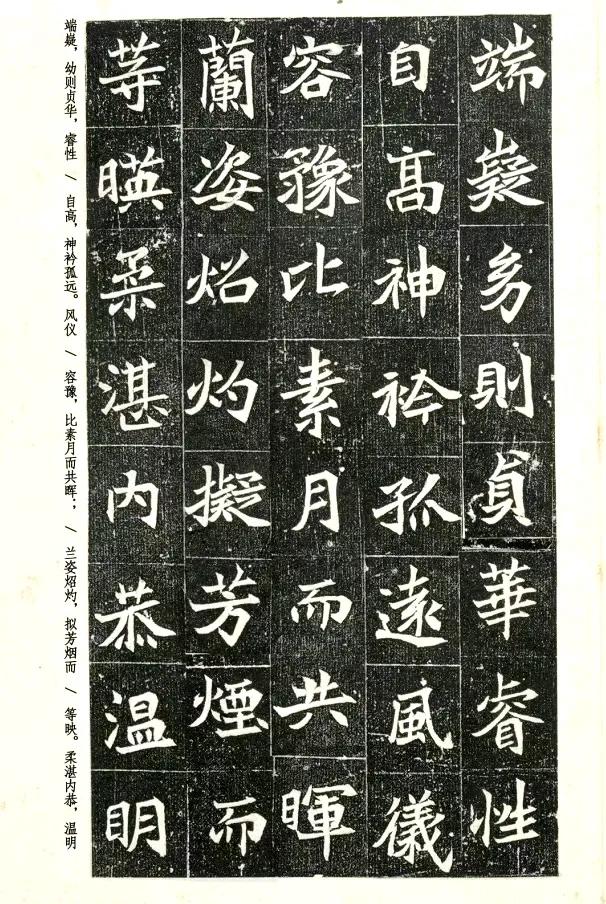 端嶷幼則貞華睿性
自高神衿孤遠風儀
容豫比素月而共暉
蘭姿炤灼擬芳煙而
等暎柔湛內恭温明
端嶷，幼则贞华，睿性 / 自高，神衿孤远。风仪 / 容豫，比素月而共晖； / 兰姿炤灼，拟芳烟而 / 等映。柔湛内恭，温明